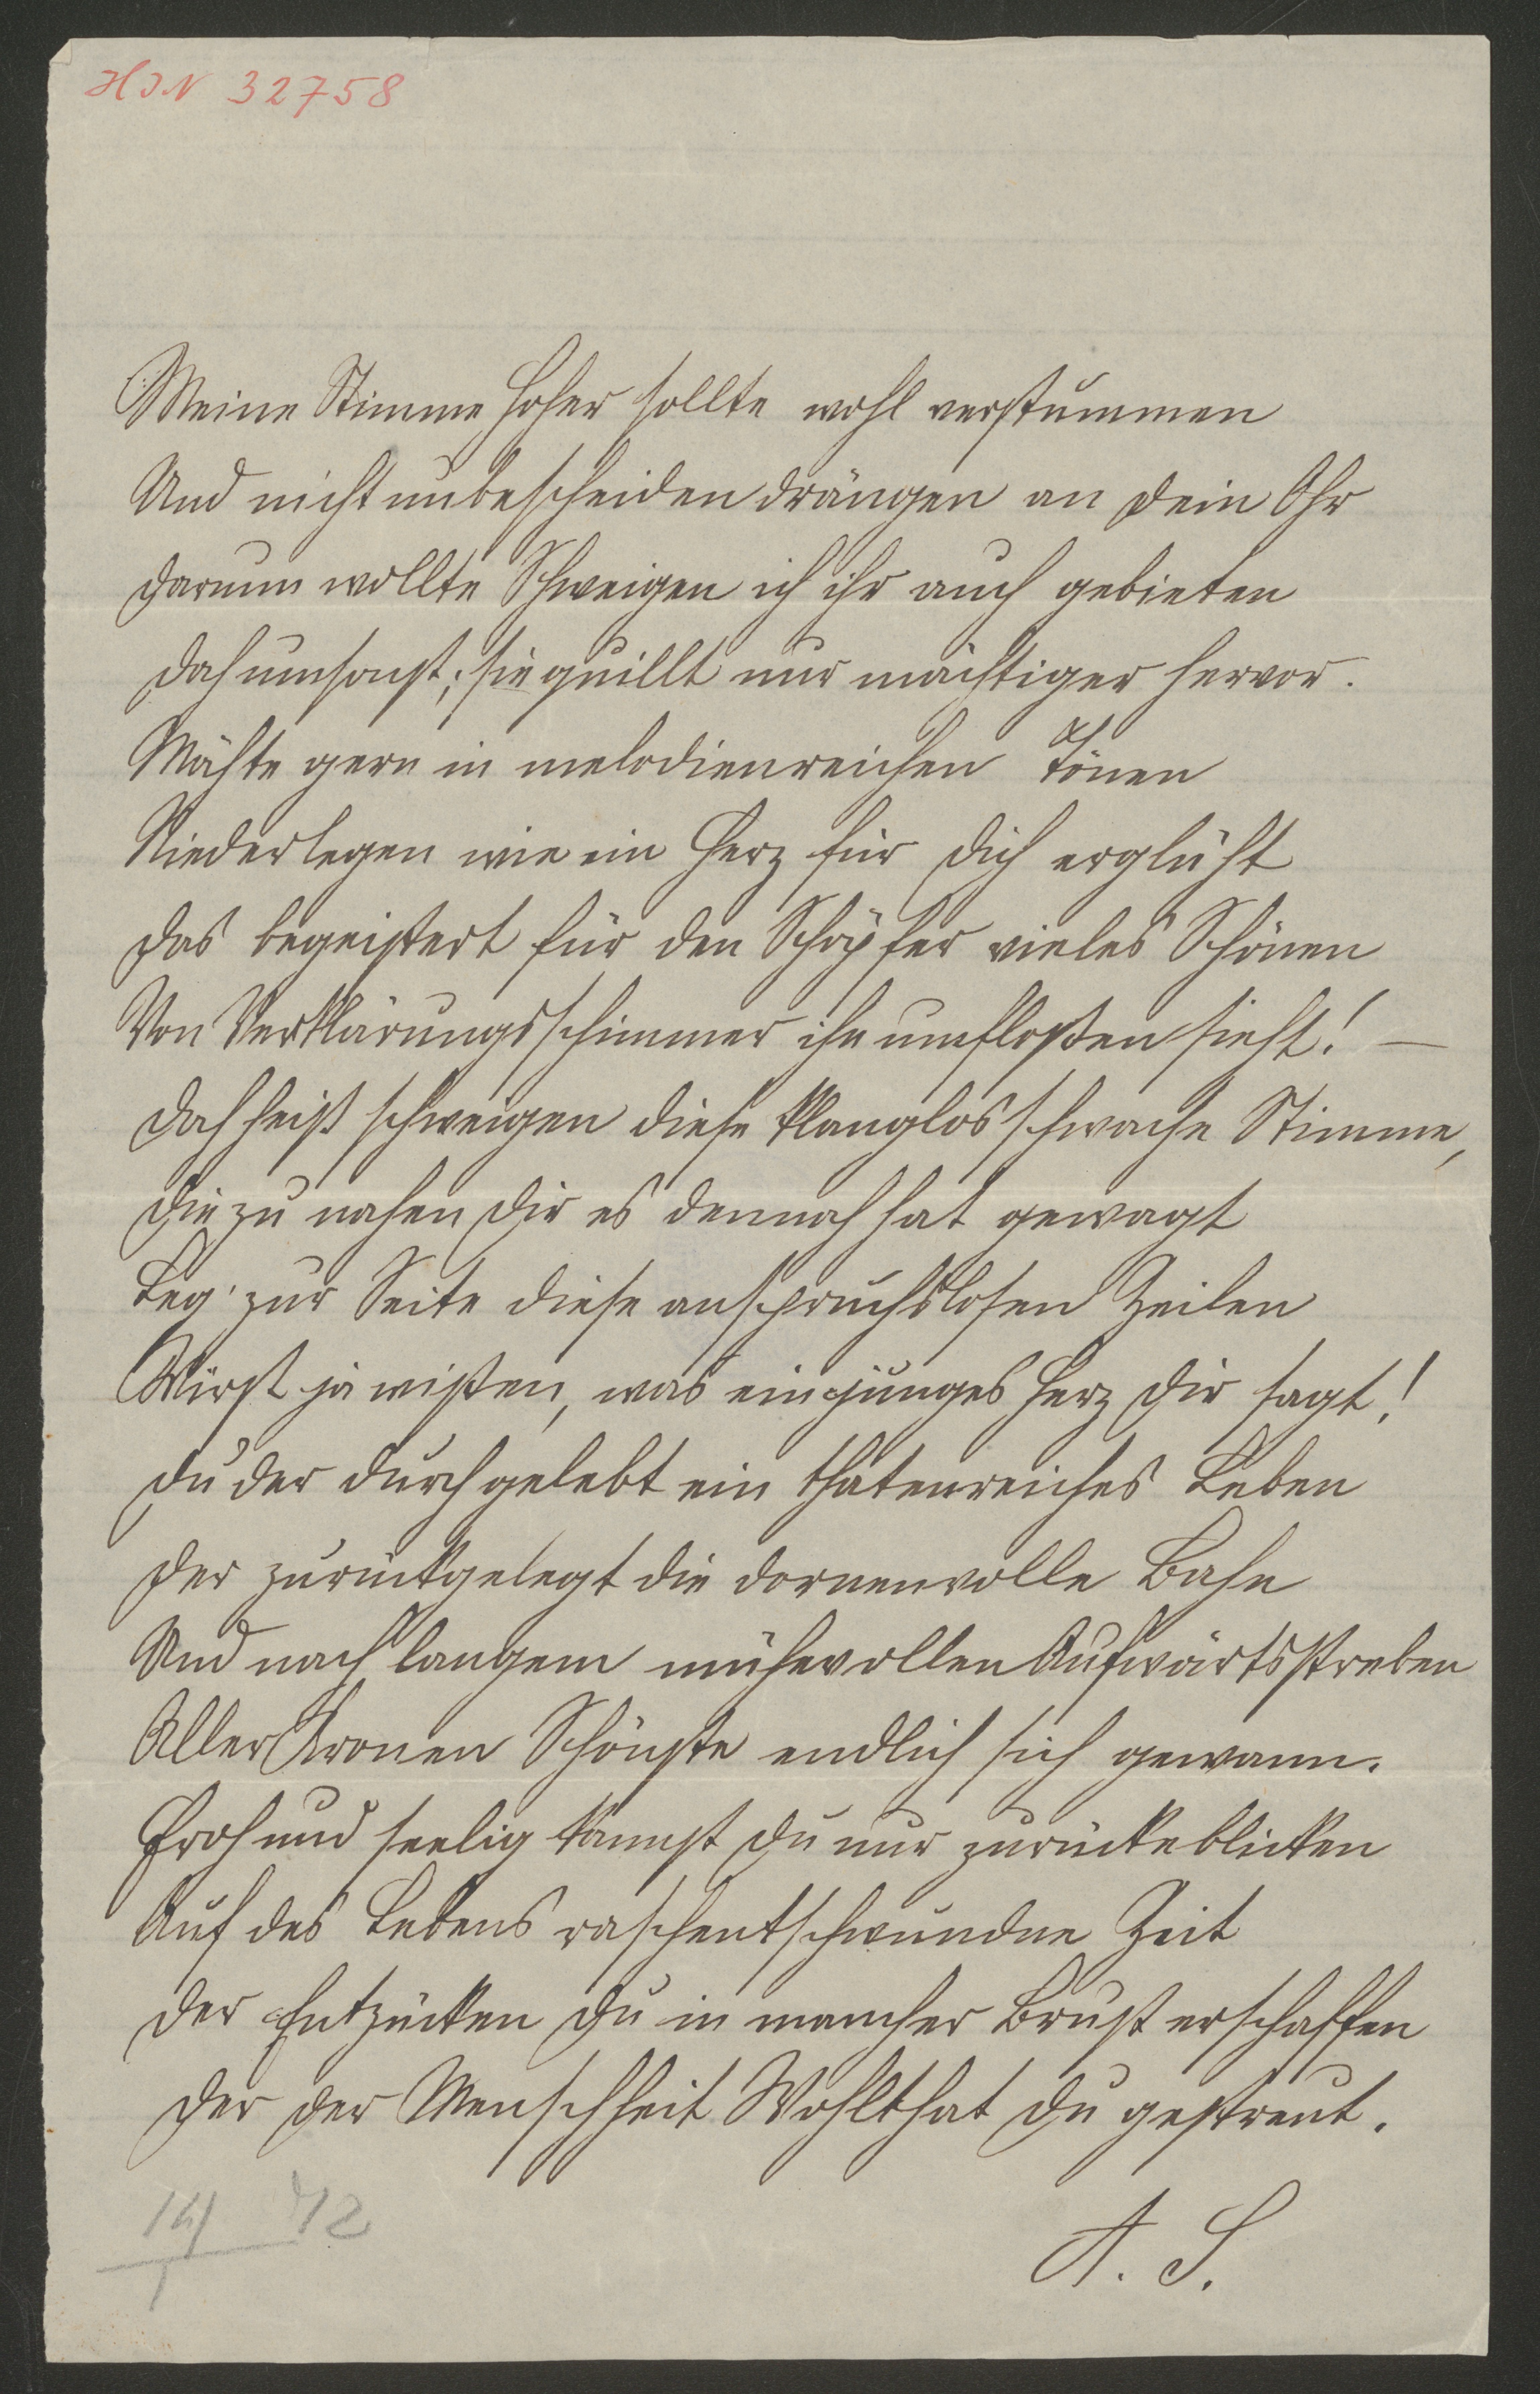 HIN 32758
Meine Stimme Hoher sollte wohl verstummen
Und nicht unbescheiden drängen an Dein Ohr
Darum wollte Schweigen ich ihr auch gebieten
Doch umsonst; sie quillt nur mächtiger hervor.
Möchte gern in melodienreichen Tönen
Niederlegen wie ein Herz für Dich erglüht
Das begeistert für den Schöpfer vieles Schönen
Von Verklärungsschimmer ihn umfloßen sieht! —
Doch heiß schweigen diese klanglos schwache Stimme,
Die zu nahen Dir es dennoch hat gewagt
Leg' zur Seite diese anspruchslosen Zeilen
Wirst ja wißen, was ein junges Herz Dir sagt!
Du der durchgelebt ein thatenreiches Leben
Der zurückgelegt die dornenvolle Bahn
Und nach langem mühevollen Aufwärtsstreben
Aller Kronen Schönste endlich sich gewann.
Froh und seelig kannst Du nur zurückeblicken
Auf des Lebens raschentschwundne Zeit
Der Entzücken Du in mancher Brust erschaffen
Der der Menschheit Wohlthat Du gestreut.
A. S.
14/1 72